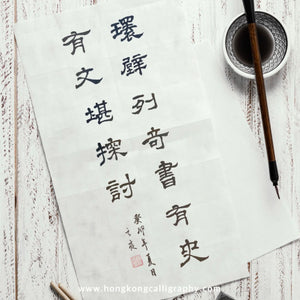 環壁列奇書有史
有文堪探討
癸卯年夏日
www.hongkongcalligraphy.com